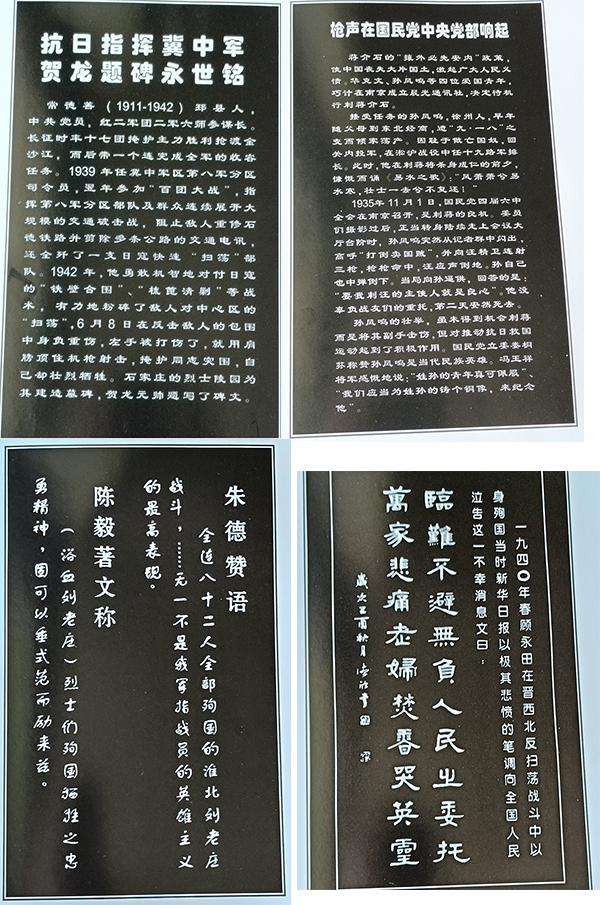 抗日指挥冀中军
贺龙题碑永世铭
常德善（1911-1942）邳县人，
中共党员，红二军团二军六师参谋长。
长征时率十七团掩护主力胜利抢渡金
沙江，而后带一个连完成全军的收容
任务。1939年任冀中军区第八军分区
司令员，翌年参加“百团大战”，指
挥第八军分区部队及群众连续展开大
规模的交通破击战，阻止敌人重修石
德铁路并剪除多条公路的交通电讯，
还全歼了一支日寇快速“扫荡”部
队。1942年，他勇敢机智地对付日寇
的“铁壁合围”、“梳篦清剿”等战
术，有力地粉碎了敌人对中心区的
“扫荡”，6月8日在反击敌人的包围
中身负重伤，左手被打伤了，就用肩
膀顶住机枪射击，掩护同志突围，自
己却壮烈牺牲。石家庄的烈士陵园为
其建造墓碑，贺龙元帅题写了碑文。
枪声在国民党中央党部响起
蒋介石的“攘外必先安内”政策，
使中国丧失大片国土，激起广大人民义
愤。华克文、孙凤鸣等四位爱国青年，
巧计在南京成立晨光通讯社，决定待机
行刺蒋介石。
接受任务的孙凤鸣，徐州人，早年
随父母到东北经商，遭“九·一八”之
变而倾家荡产。因耻于做亡国奴，回
关内投军，在淞沪战役中任十九路军排
长。此时，他在刺蒋将杀身成仁的前夕，
慷慨而诵《易水之歌》：“风萧萧兮易
水寒，壮士一去兮不复还！”
1935年11月1日，国民党四届六中
全会在南京召开，是刺蒋的良机。委员
们摄影过后，正当转身陆续走上会议大
厅台阶时，孙凤鸣突然从记者群中闪出，
高呼“打倒卖国贼”，并向汪精卫连射
三枪，枪枪命中，汪应声倒地。孙自己
也中弹倒下。当局向孙逼供，回答的是：
“要我刺汪的主使人就是良心”。他没
辜负战友们的重托，第二天安然死去。
孙凤鸣的壮举，虽未得到机会刺蒋
而是将其副手击伤，但对推动抗日救国
运动起到了积极作用。国民党立委娄桐
荪称赞孙凤鸣是当代民族英雄。冯玉祥
将军感慨地说：“姓孙的青年真可佩服”、
“我们应当为姓孙的铸个铜像，来纪念
他”。
朱德赞语
全连八十二人全部殉国的淮北刘老庄
战斗，……无一不是我军指战员的英雄主义
的最高表现。
陈毅著文称
（浴血刘老庄）烈士们殉国牺牲之忠
勇精神，固可以垂式范而励来兹。
一九四〇年春顾永田在晋西北反扫荡战斗中以
身殉国当时新华日报以极其悲愤的笔调向全国人民
泣告这一不幸消息文曰：
臨難不避無負人民之委托
萬家悲痛老婦焚香哭英靈